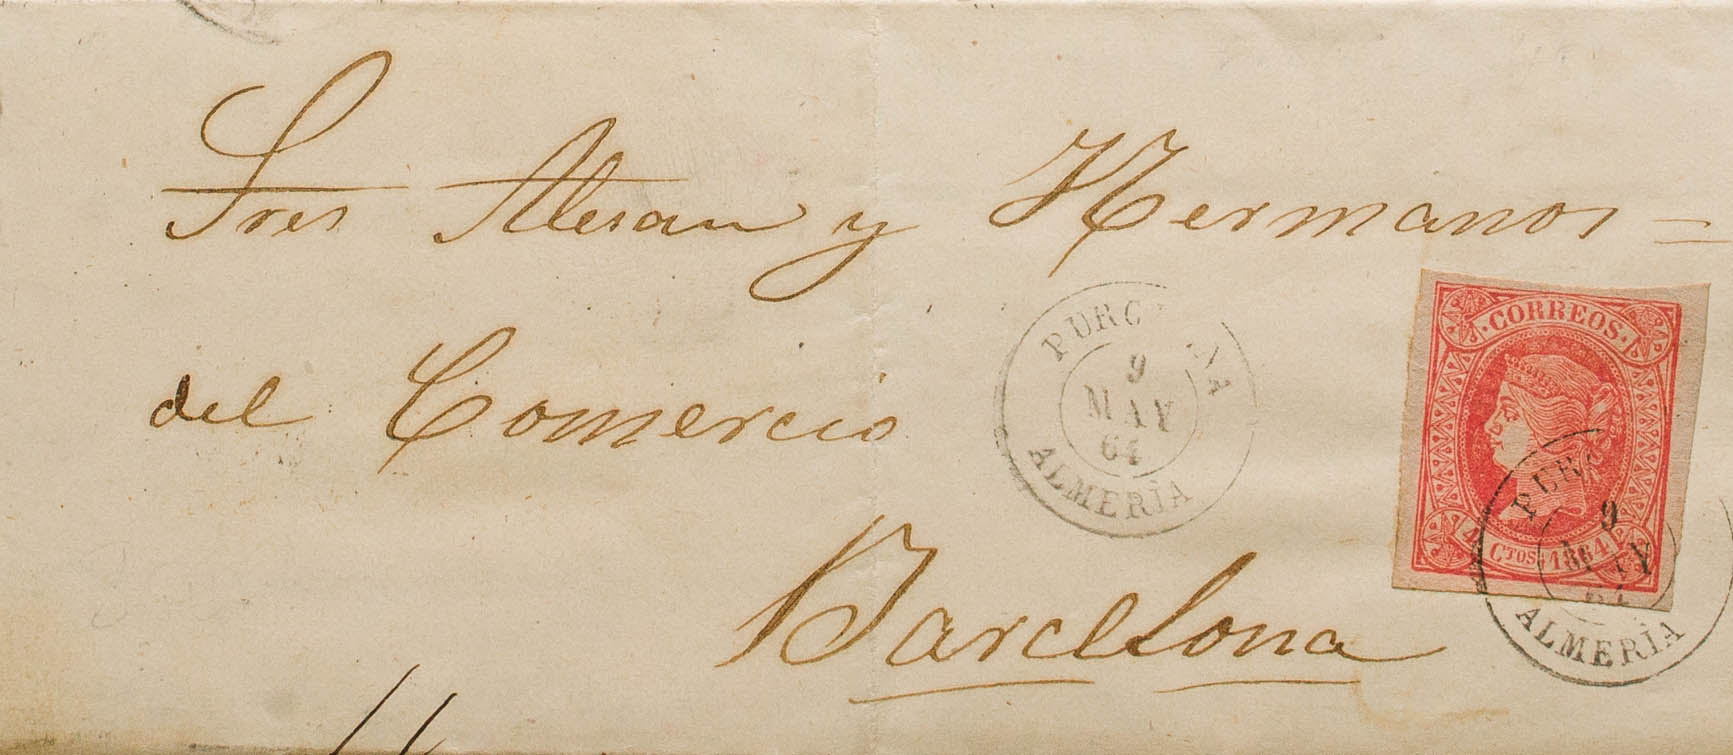 Sres Alesan y Hermanos =
del Comercio
Barcelona
PURC NA
9
MAY
64
ALMERÍA
CORREOS.
4 CTOS. 1864
PUR
9
MAY
64
ALMERÍA